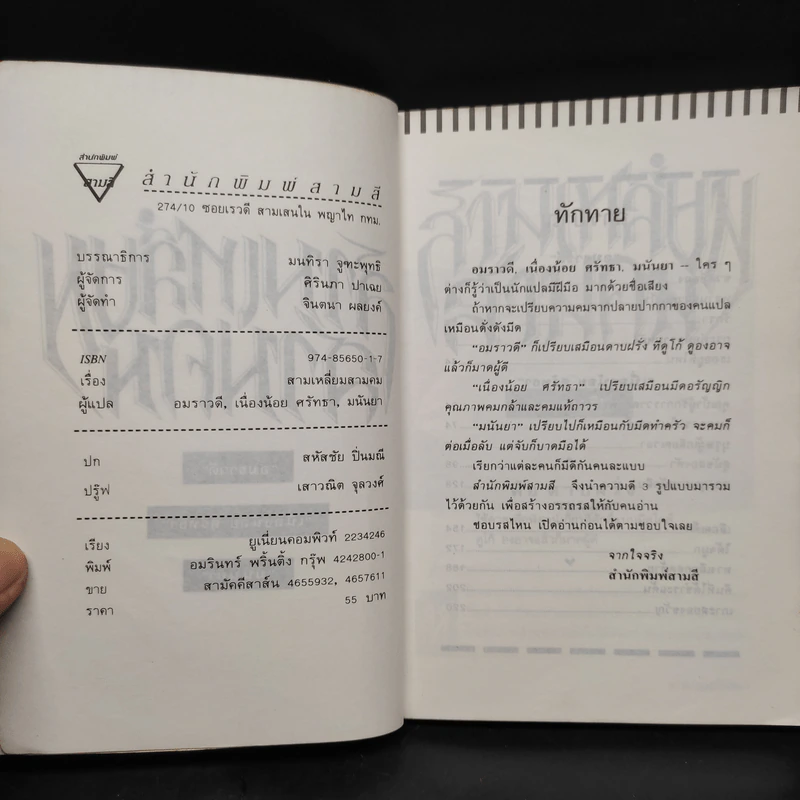 สำนักพิมพ์
สามสี
สำนักพิมพ์สามสี
274/10 ซอยเรวดี สามเสนใน พญาไท กทม.
บรรณาธิการ มนทิรา จูฑะพุทธิ
ผู้จัดการ ศิรินภา ปาเฉย
ผู้จัดทำ จินตนา ผลยงค์
ISBN 974-85650-1-7
เรื่อง สามเหลี่ยมสามคม
ผู้แปล อมราวดี, เนื่องน้อย ศรัทธา, มนันยา
ปก สหัสชัย ปิ่นมณี
ปรู๊ฟ เสาวณิต จุลวงศ์
เรียง ยูเนี่ยนคอมพิวท์ 2234246
พิมพ์ อมรินทร์ พริ้นติ้ง กรุ๊พ 4242800-1
ขาย สามัคคีสาส์น 4655932, 4657611
ราคา 55 บาท
ทักทาย
อมราวดี, เนื่องน้อย ศรัทธา, มนันยา – ใคร ๆ
ต่างก็รู้ว่าเป็นนักแปลมีฝีมือ มากด้วยชื่อเสียง
ถ้าหากจะเปรียบความคมจากปลายปากกาของคนแปล
เหมือนดั่งดังมีด
“อมราวดี” ก็เปรียบเสมือนดาบฝรั่ง ที่ดูโก้ ดูองอาจ
แล้วก็มาดผู้ดี
“เนื่องน้อย ศรัทธา” เปรียบเสมือนมีดอรัญญิก
คุณภาพคมกล้าและคมแท้ถาวร
“มนันยา” เปรียบไปก็เหมือนกับมีดทำครัว จะคมก็
ต่อเมื่อลับ แต่จับก็บาดมือได้
เรียกว่าแต่ละคนก็มีดีกันคนละแบบ
สำนักพิมพ์สามสี จึงนำความดี 3 รูปแบบมารวม
ไว้ด้วยกัน เพื่อสร้างอรรถรสให้กับคนอ่าน
ชอบรสไหน เปิดอ่านก่อนได้ตามชอบใจเลย
จากใจจริง
สำนักพิมพ์สามสี